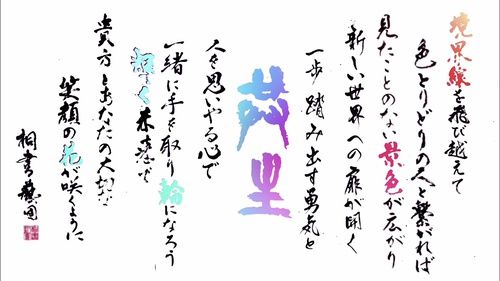 境界線を飛び越えて
色とりどりの人と繋がれば
見たことのない景色が広がり
新しい世界への扉が開く
一歩踏み出す勇気と
共生
人を思いやる心で
一緒に手を取り輪になろう
輝く未来
貴方とあなたの大切な
笑顔の花が咲くように